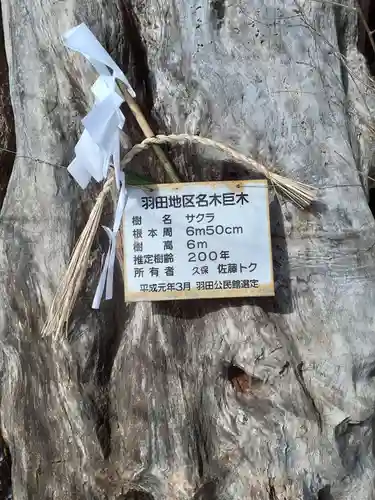 羽田地区名木巨木
樹 名 サクラ
根本周 6m50cm
樹 高 6m
推定樹齢 200年
所有者 久保 佐藤トク
平成元年3月 羽田公民館選定